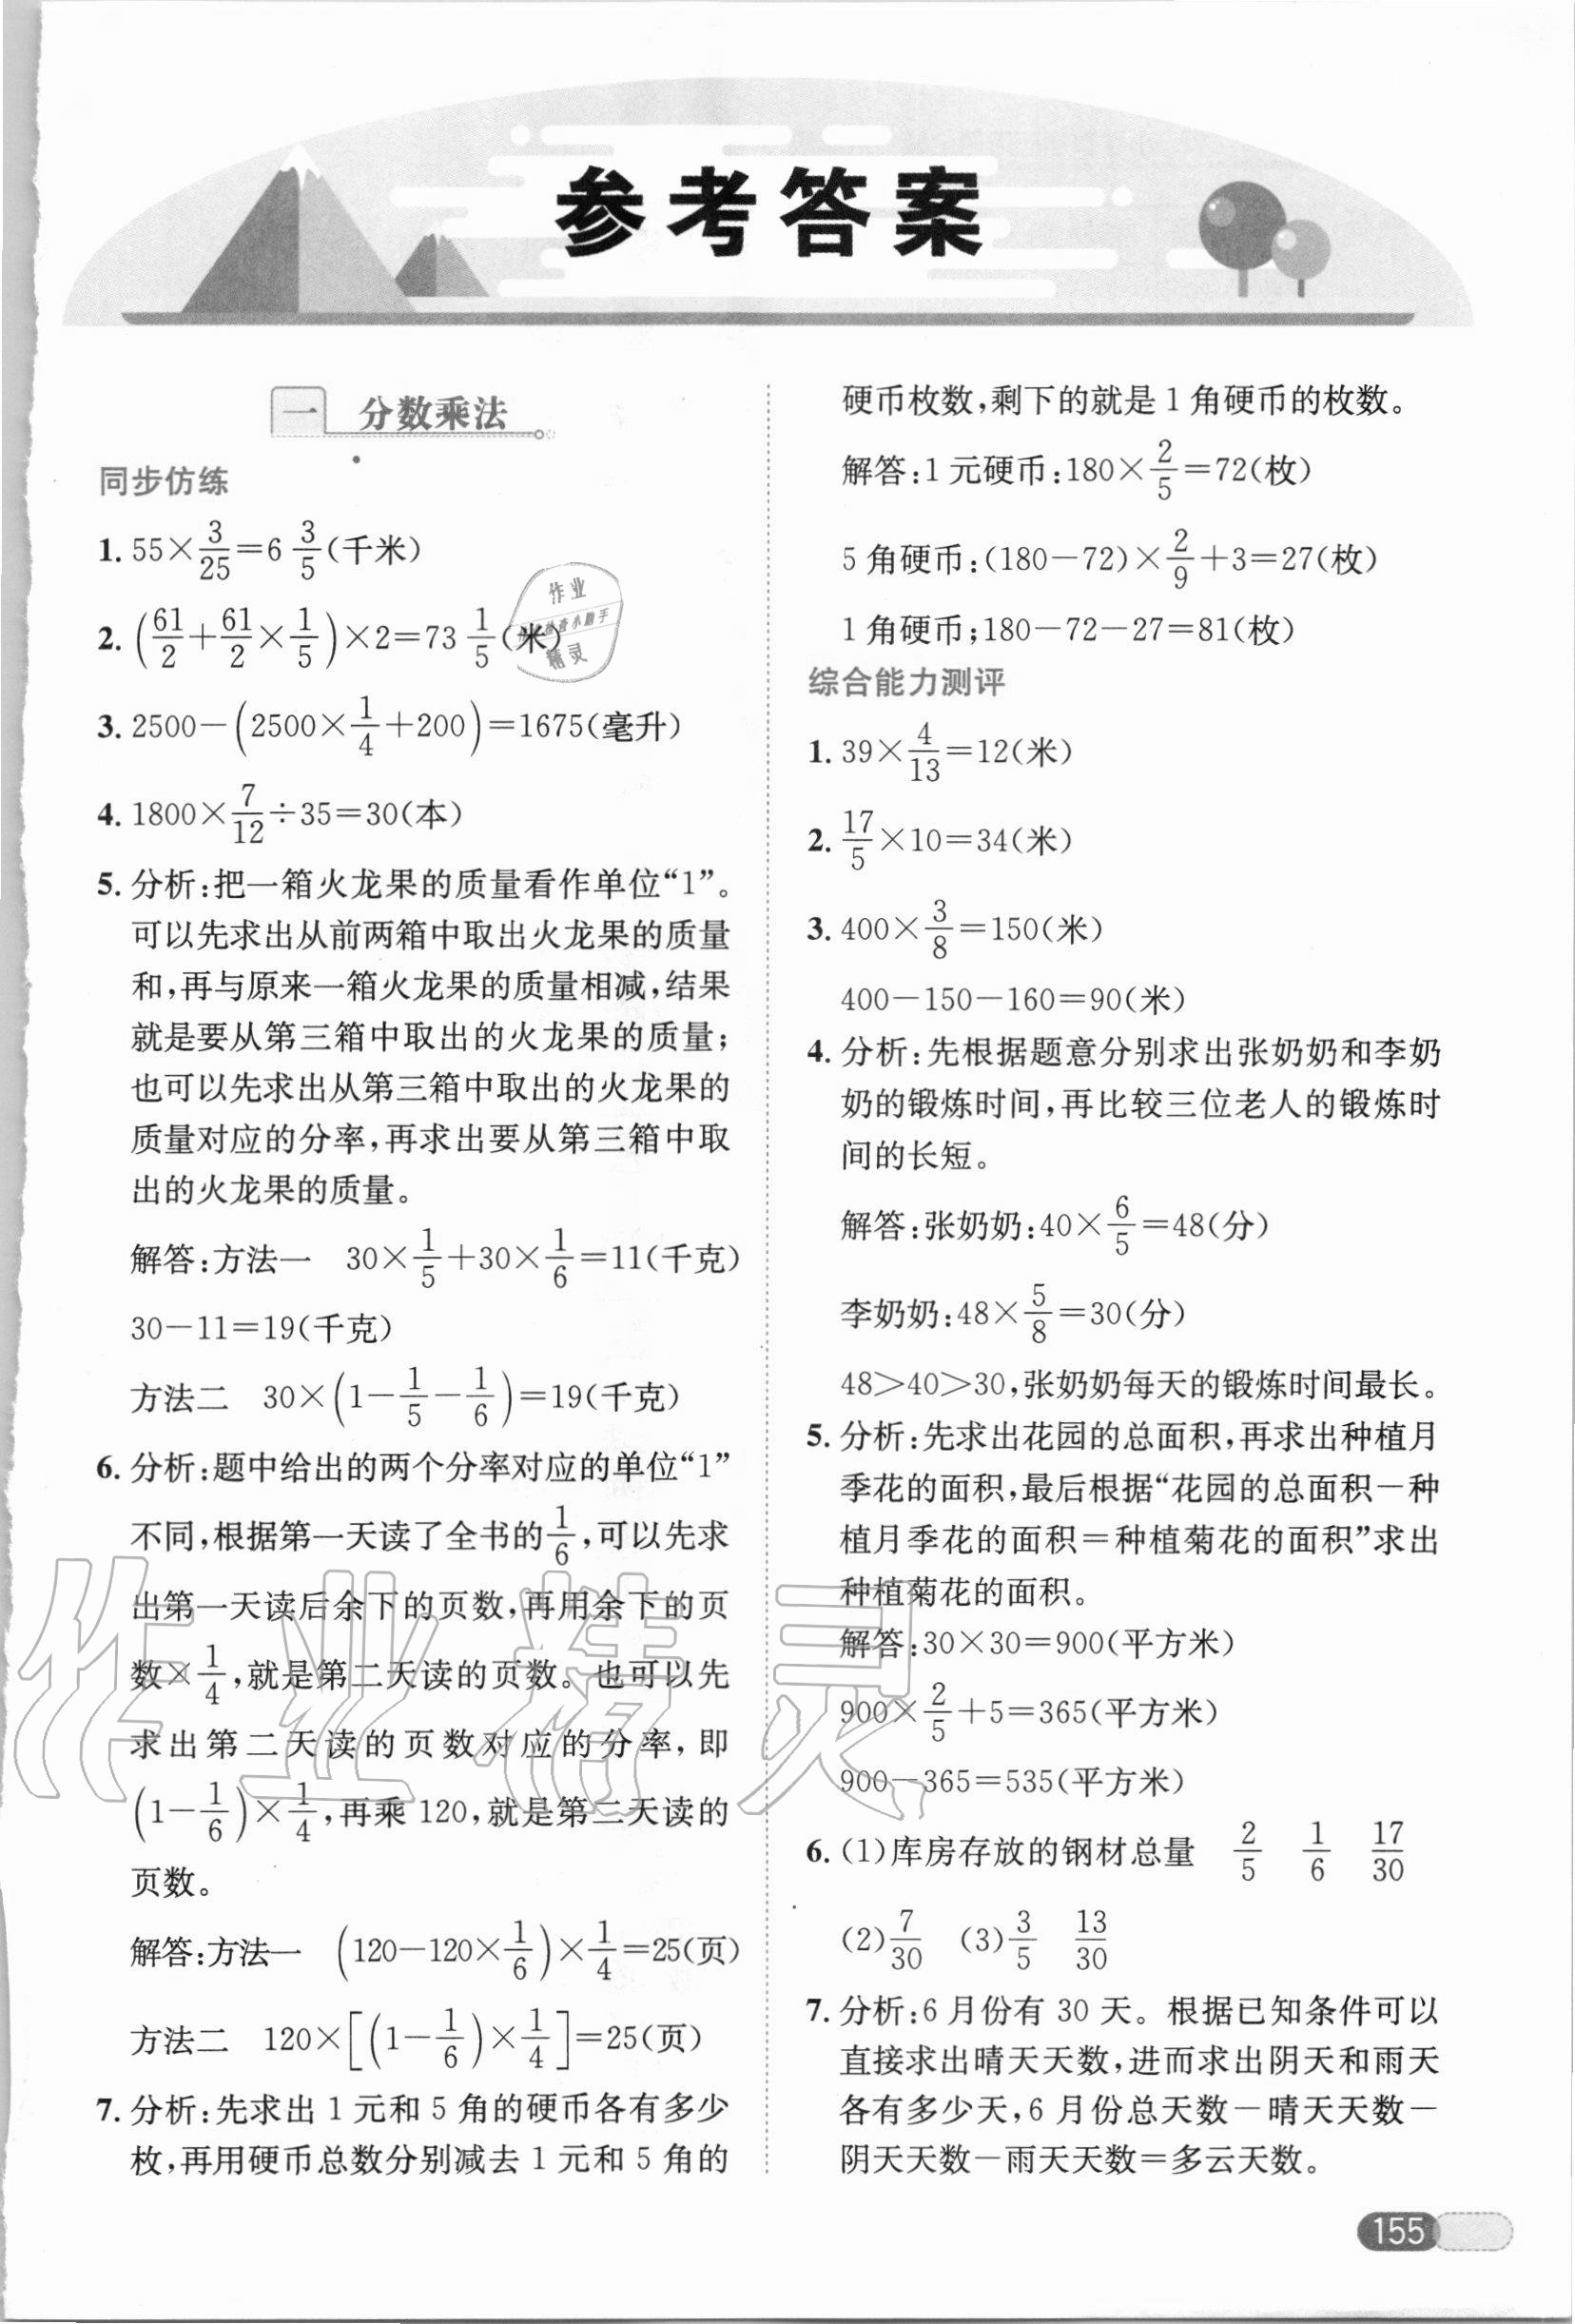 参考答案
一 分数乘法
同步仿练
1. 55×3/25=6 3/5(千米)
2. (61/2+61/2×1/5)×2=73 1/5(米)
3. 2500-(2500×1/4+200)=1675(毫升)
4. 1800×7/12÷35=30(本)
5. 分析:把一箱火龙果的质量看作单位“1”。
可以先求出从前两箱中取出火龙果的质量
和,再与原来一箱火龙果的质量相减,结果
就是要从第三箱中取出的火龙果的质量;
也可以先求出从第三箱中取出的火龙果的
质量对应的分率,再求出要从第三箱中取
出的火龙果的质量。
解答:方法一 30×1/5+30×1/6=11(千克)
30-11=19(千克)
方法二 30×(1-1/5-1/6)=19(千克)
6. 分析:题中给出的两个分率对应的单位“1”
不同,根据第一天读了全书的1/6,可以先求
出第一天读后余下的页数,再用余下的页
数×1/4,就是第二天读的页数。也可以先
求出第二天读的页数对应的分率,即
(1-1/6)×1/4,再乘120,就是第二天读的
页数。
解答:方法一 (120-120×1/6)×1/4=25(页)
方法二 120×[(1-1/6)×1/4]=25(页)
7. 分析:先求出1元和5角的硬币各有多少
枚,再用硬币总数分别减去1元和5角的
硬币枚数,剩下的就是1角硬币的枚数。
解答:1元硬币:180×2/5=72(枚)
5角硬币:(180-72)×2/9+3=27(枚)
1角硬币;180-72-27=81(枚)
综合能力测评
1. 39×4/13=12(米)
2. 17/5×10=34(米)
3. 400×3/8=150(米)
400-150-160=90(米)
4. 分析:先根据题意分别求出张奶奶和李奶
奶的锻炼时间,再比较三位老人的锻炼时
间的长短。
解答:张奶奶:40×6/5=48(分)
李奶奶:48×5/8=30(分)
48>40>30,张奶奶每天的锻炼时间最长。
5. 分析:先求出花园的总面积,再求出种植月
季花的面积,最后根据“花园的总面积-种
植月季花的面积=种植菊花的面积”求出
种植菊花的面积。
解答:30×30=900(平方米)
900×2/5+5=365(平方米)
900-365=535(平方米)
6. (1)库房存放的钢材总量 2/5 1/6 17/30
(2)7/30 (3)3/5 13/30
7. 分析:6月份有30天。根据已知条件可以
直接求出晴天天数,进而求出阴天和雨天
各有多少天,6月份总天数-晴天天数-
阴天天数-雨天天数=多云天数。
155
作业
检查小助手
精灵
作业精灵